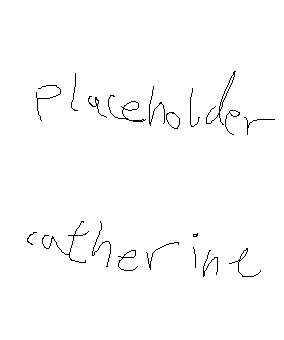 placeholder
catherine